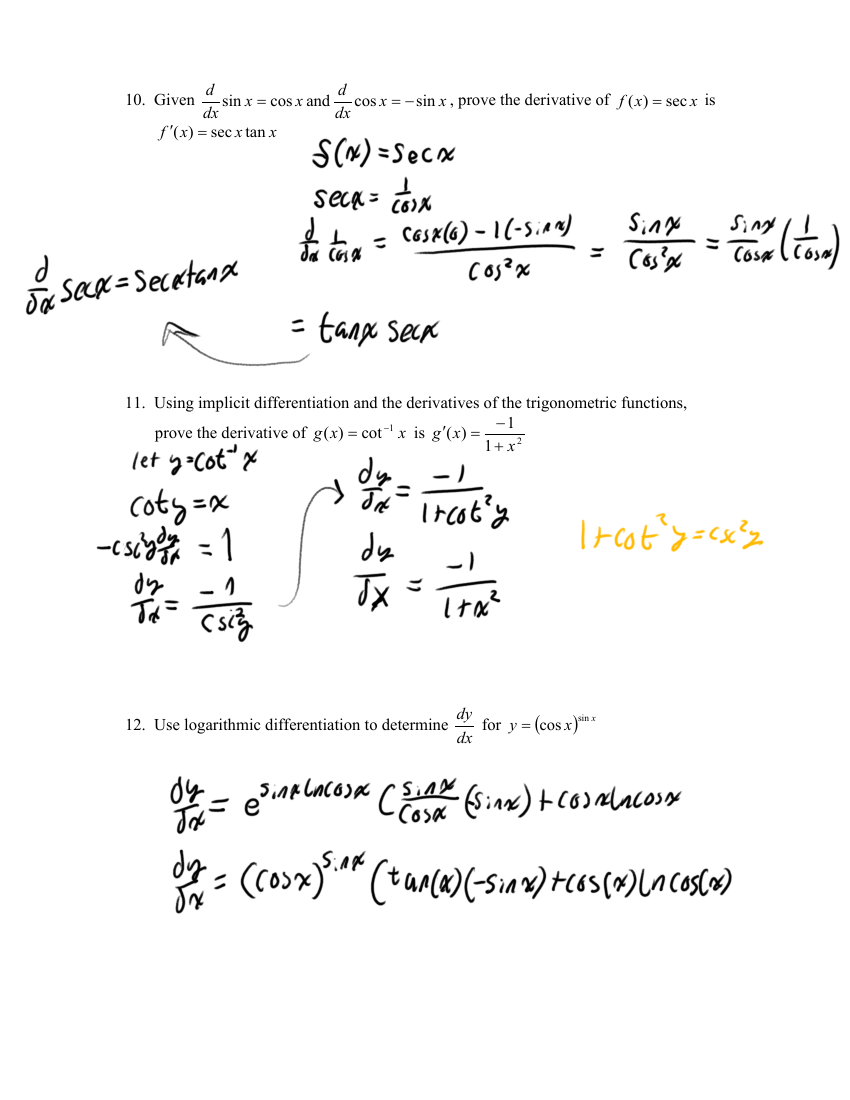 10. Given d/dx sin x = cos x and d/dx cos x = − sin x , prove the derivative of f (x) = sec x is
f ′(x) = sec x tan x
f(x) = secx
secx = 1/cosx
d/dx 1/cosx = (cosx(0) − 1(−sinx))/cos²x = sinx/cos²x = sinx/cosx (1/cosx)
d/dx secx = secxtanx
= tanx secx
11. Using implicit differentiation and the derivatives of the trigonometric functions,
prove the derivative of g(x) = cot⁻¹ x is g′(x) = −1/(1 + x²)
let y=cot⁻¹ x
coty = x
−csc²y dy/dx = 1
dy/dx = −1/csc²y
dy/dx = −1/(1+cot²y)
dy/dx = −1/(1+x²)
1+cot²y=cx²y
12. Use logarithmic differentiation to determine dy/dx for y = (cos x)^(sin x)
dy/dx = e^(sinxlncosx) (sinx/cosx (-sinx) + cosxlncosx
dy/dx = (cosx)^(sinx) (tan(x)(−sinx)+cos(x)lncos(x)